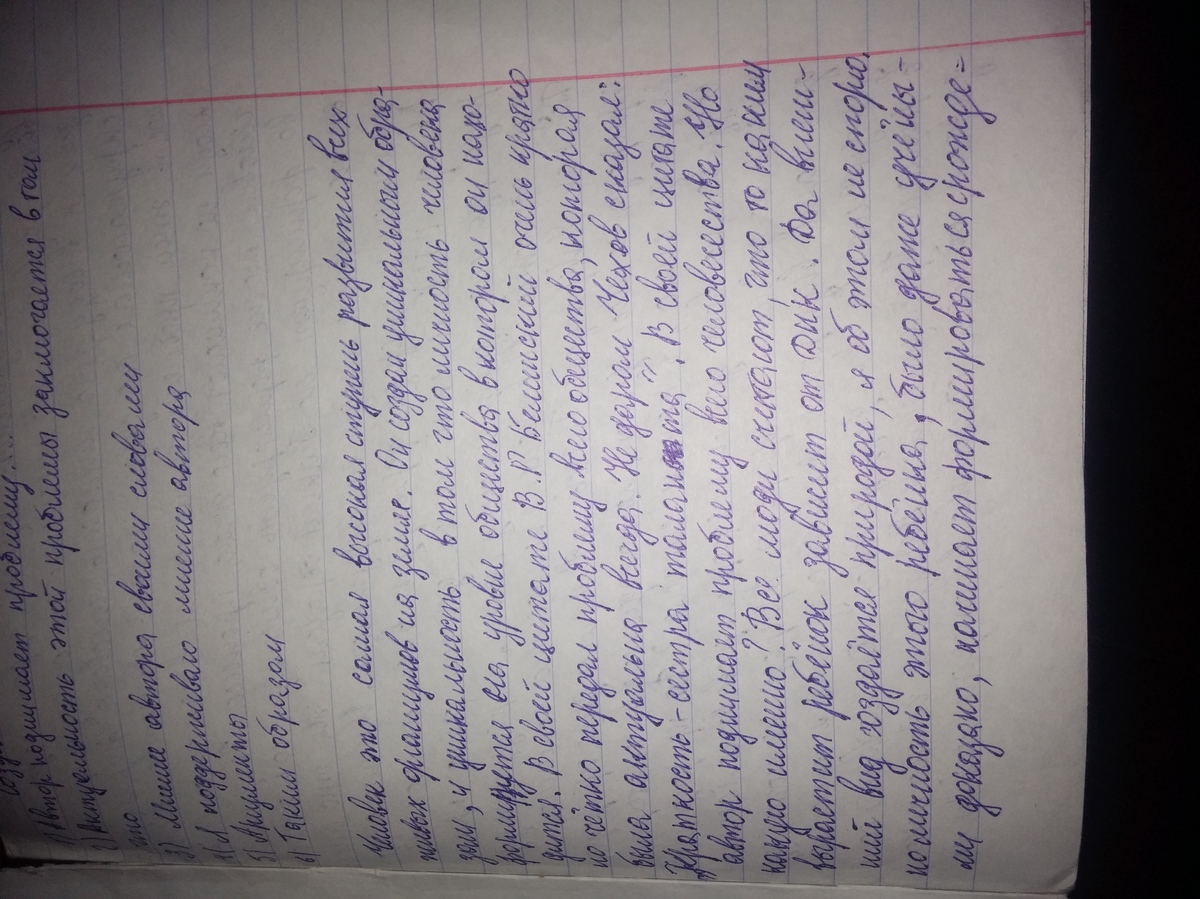 1) Автор поднимает проблему...
2) Актуальность этой проблемы заключается в том
что
3) Мнение автора своими словами
4) Я поддерживаю мнение автора
5) Аргументы
6) Таким образом
Человек это самая высокая ступень развития всех
живых организмов на земле. Он создан уникальным обра-
зом, и уникальность в том что личность человека
формируется на уровне общества в котором он нахо-
дится. В своей цитате В.Г Белинский очень кратко
но чётко передал проблему всего общества, которая
была актуальна всегда. Не даром Чехов сказал:
"Краткость - сестра таланта". В своей цитате
автор поднимает проблему всего человечества. Но
какую именно? Все люди считают, что то каким
вырастит ребёнок зависит от ДНК. Да внеш-
ний вид создаётся природой, я об этом не спорю,
но личность этого ребёнка, было даже учёны-
ми доказано, начинает формироваться с рожде=